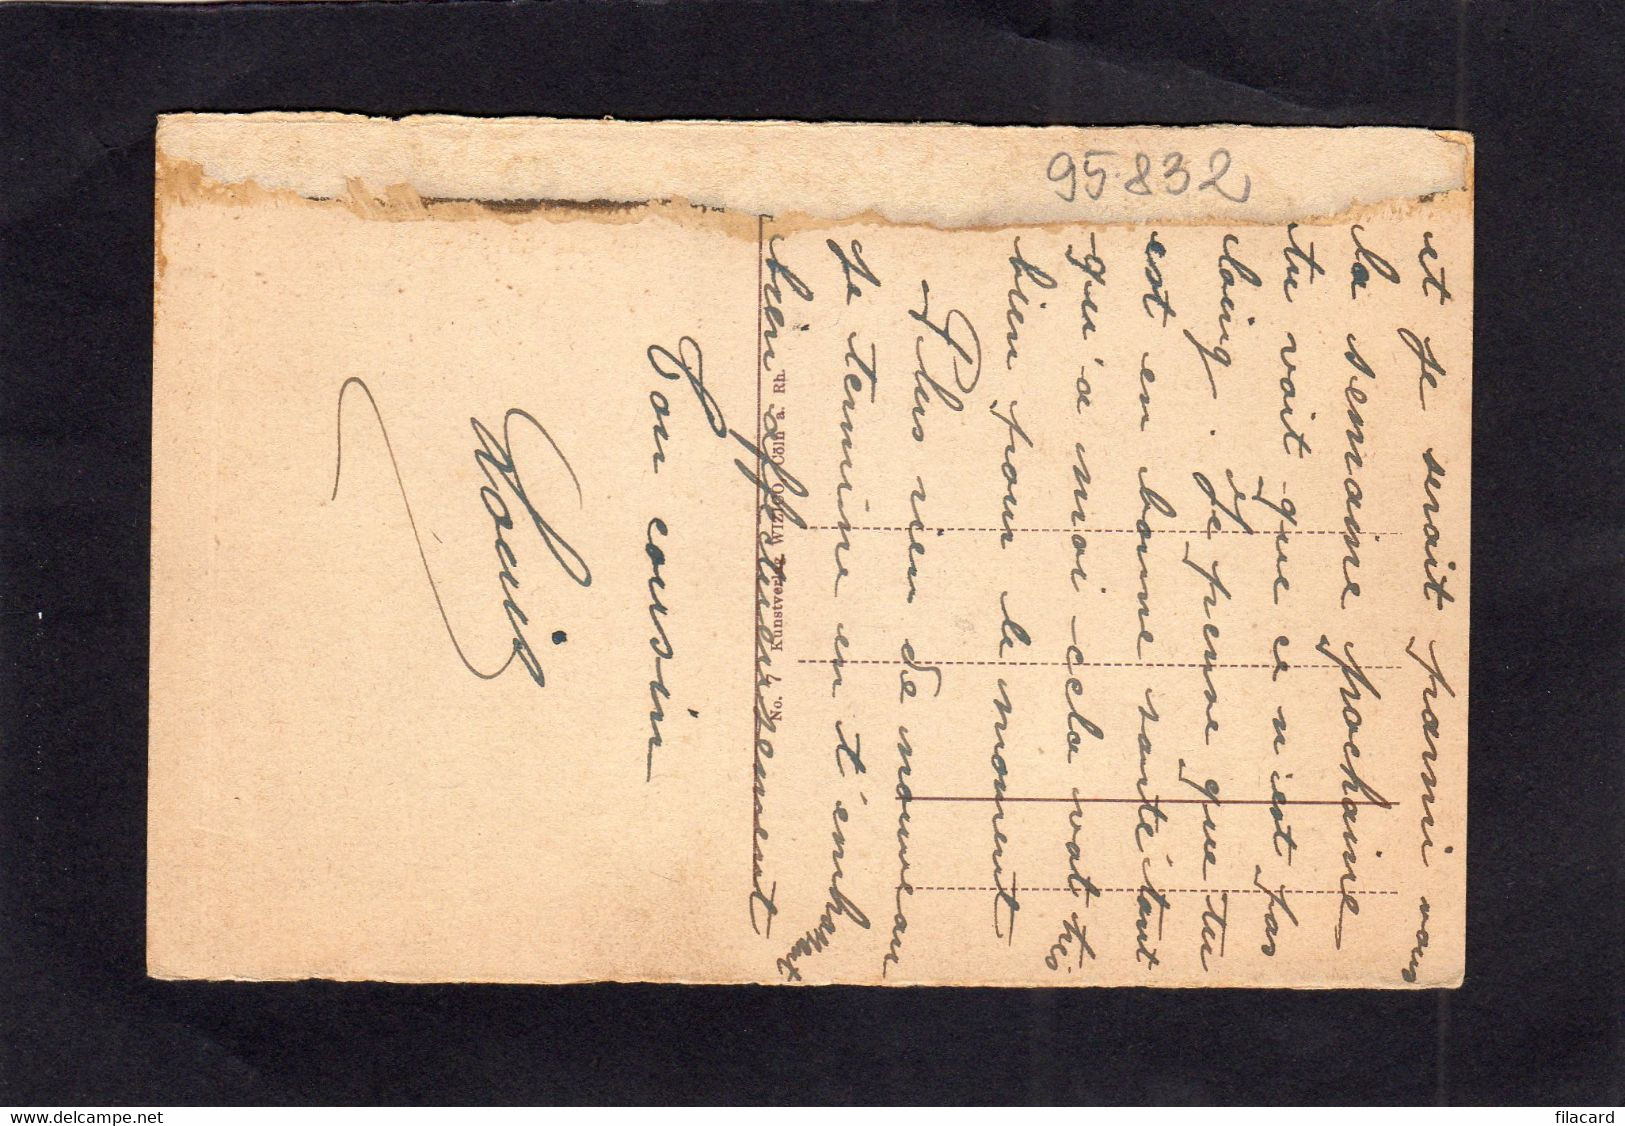 95.832
et je serait parmi vous
la semaine prochaine
tu voit que ce n'est pas
loing. Je pense que tu
est en bonne santé tant
qu'a moi cela vat très
bien pour le moment
Plus rien de nouveau
Je termine en t'embrassant
bien affectueusement
Ton cousin
Louis
No. 7 Kunstverlag WIZICO, Cöln a. Rh.
delcampe.net
filacard